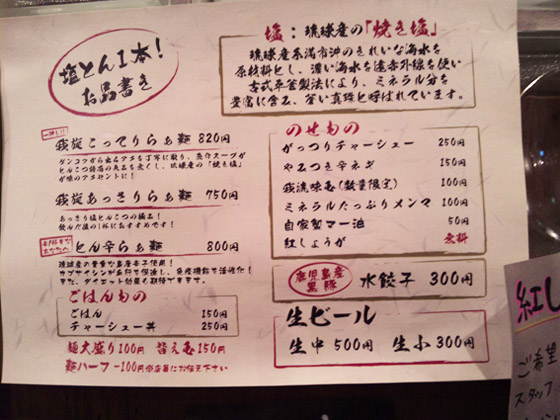 塩とん1本!
お品書き
塩:琉球産の「焼き塩」
琉球産糸満市沖のきれいな海水を
原材料とし、濃い海水を遠赤外線を使い
古式平釜製法により、ミネラル分を
豊富に含み、蒼い真珠と呼ばれています。
一押し!!
我炭こってりらぁ麺 820円
ゲンコツから出るアクを丁寧に取り、魚介スープが
とんこつ特有の臭みを無くし、琉球産の「焼き塩」
が味のアクセントに!
我炭あっさりらぁ麺 750円
あっさり塩とんこつの極み!
飲んだ後の1杯におすすめです!
お好きなあなたへ
とん辛らぁ麺 800円
琉球産の貴重な島唐辛子使用!
カプサイシンが血行を促進し、免疫機能を活性化!
また、ダイエット効果も期待できます。
ごはんもの
ごはん 150円
チャーシュー丼 250円
麺大盛り100円 替え玉150円
麺ハーフ-100円※店員にお伝え下さい
のせもの
がっつりチャーシュー 250円
やみつき辛ネギ 150円
我流味玉(数量限定) 100円
ミネラルたっぷりメンマ 100円
自家製マー油 50円
紅しょうが 無料
鹿児島産黒豚 水餃子 300円
生ビール
生中 500円 生小 300円
紅し
ご希望
スタッフ